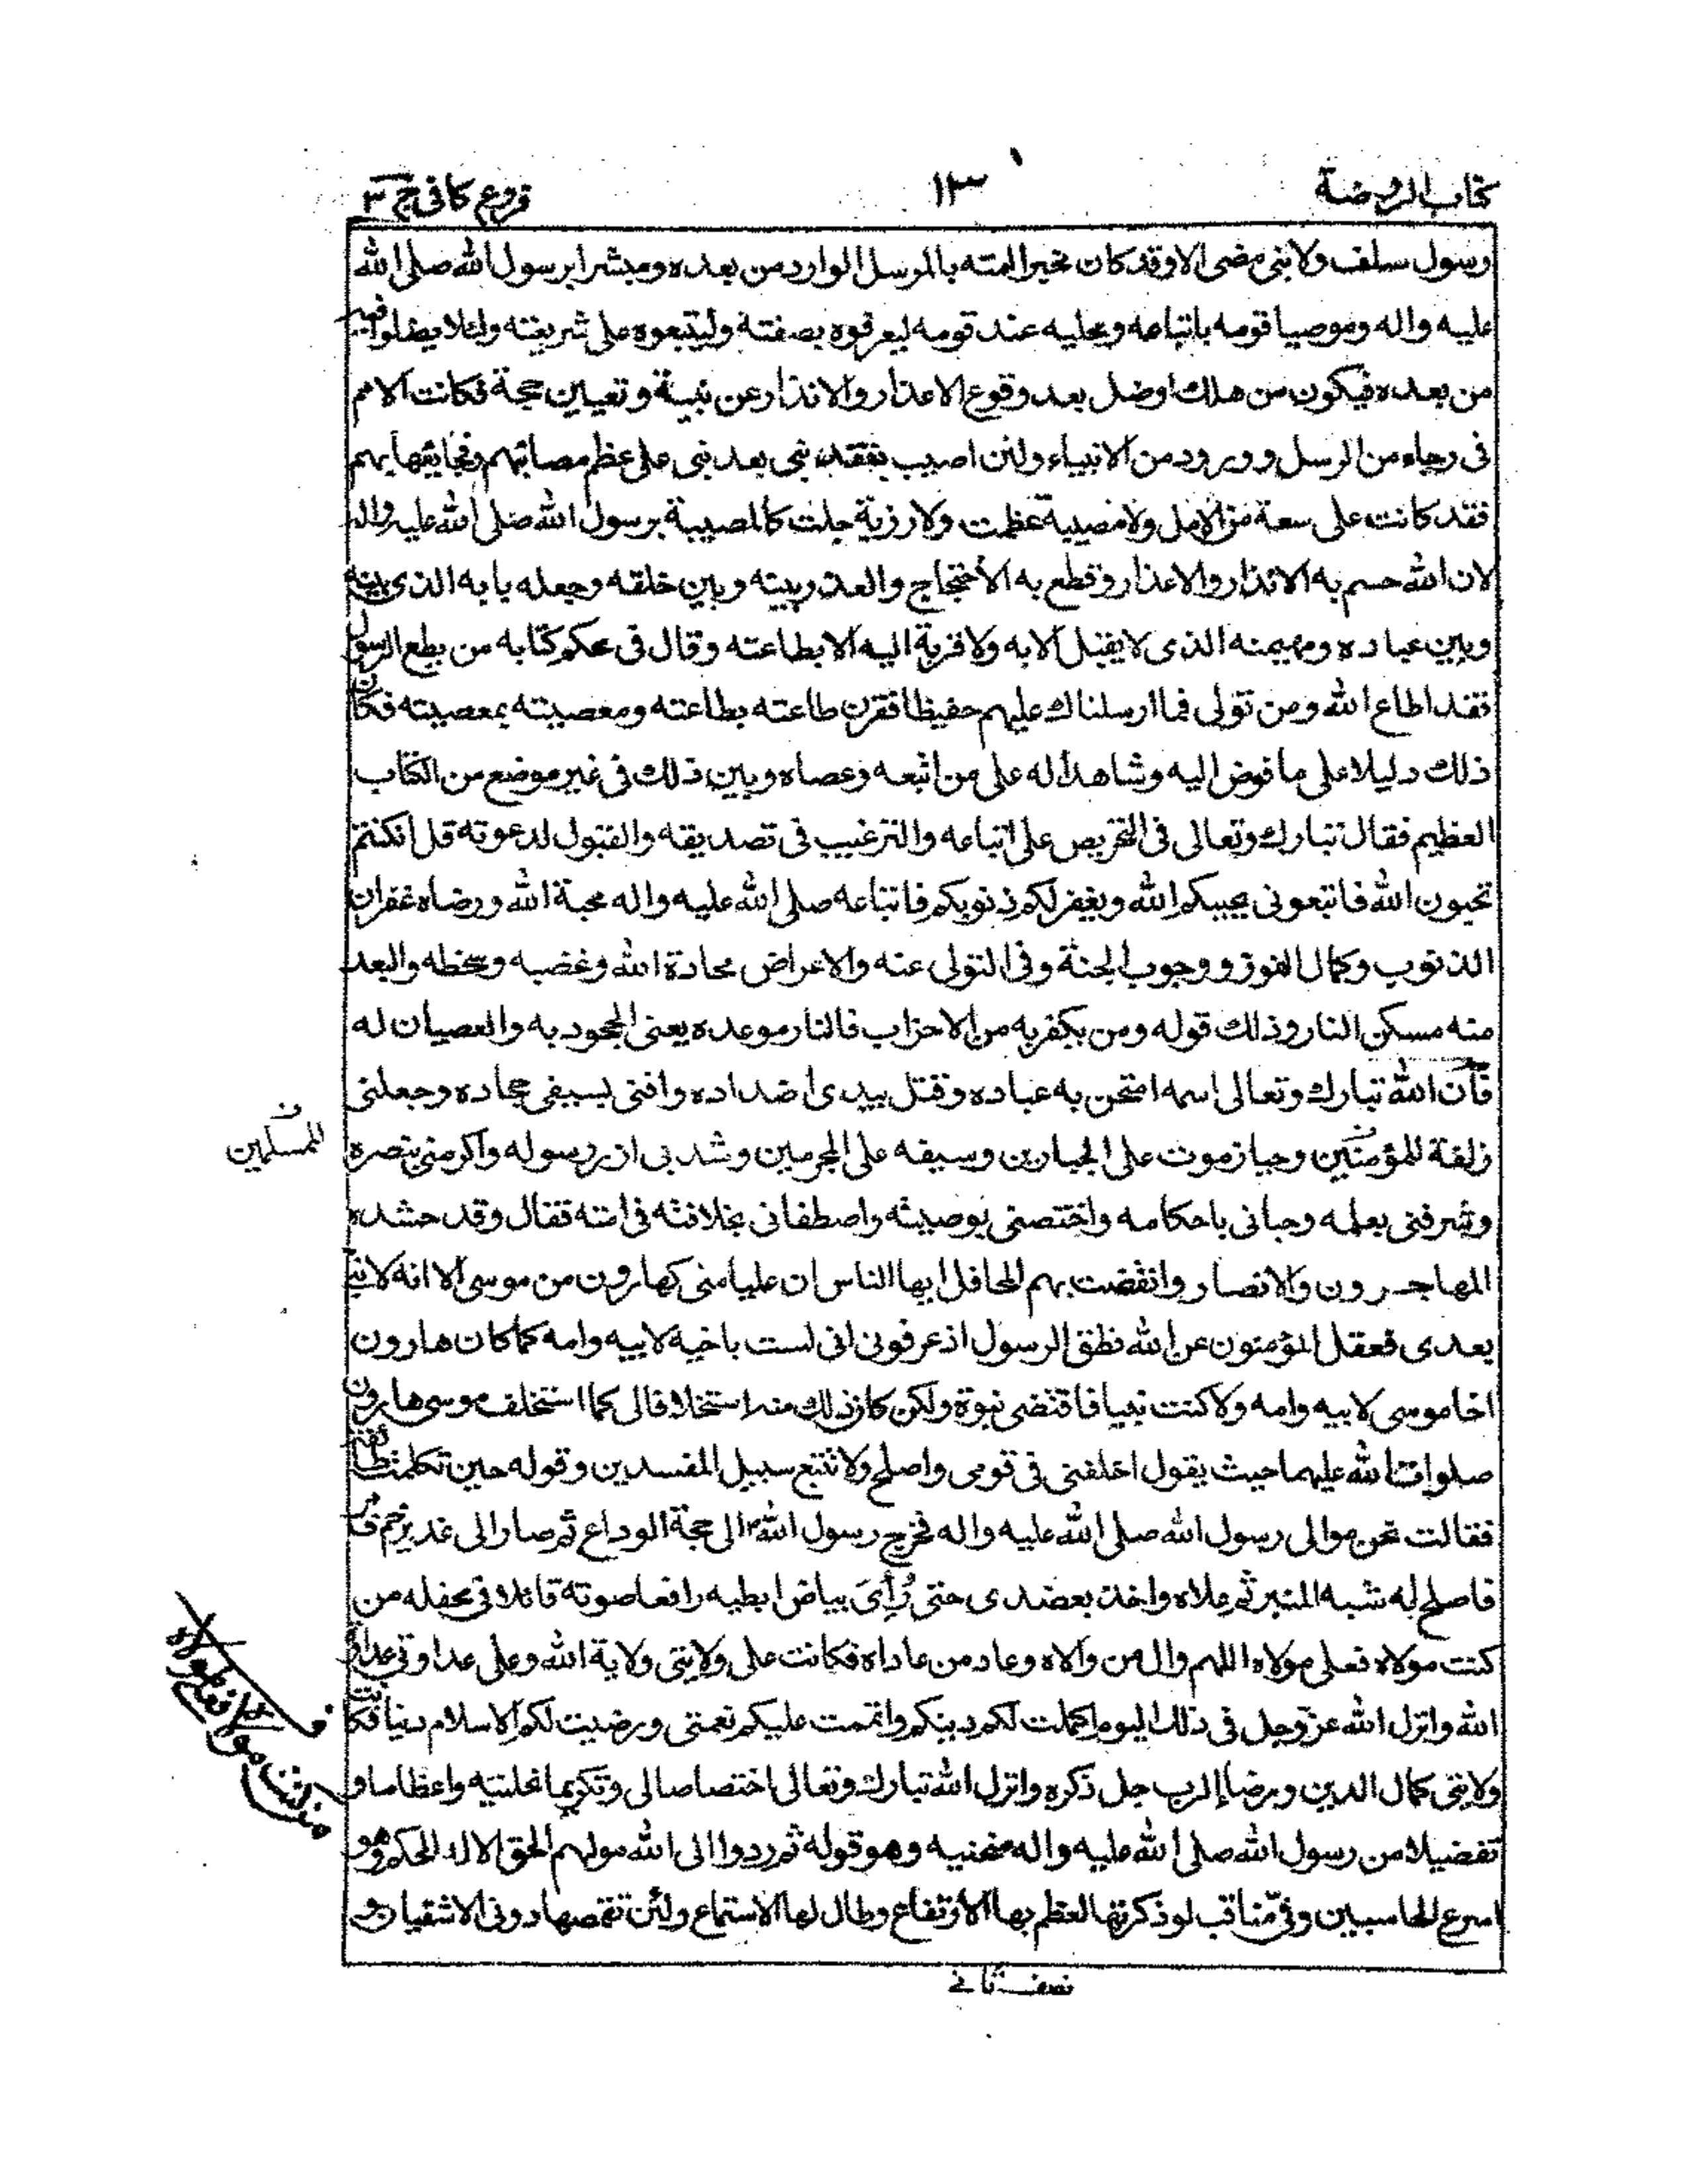 كتاب الروضة ١٣ فروع كافى ج ٣
رسول سلف ولا نبى مضى الا وقد كان مخبرا امته بالمرسل الوارد من بعده ومبشرا برسول الله صلى الله
عليه واله وموصيا قومه باتباعه ومحليه عند قومه ليعرفوه بصفته وليتبعوه على شريعته ولئلا يضلوا فيه
من بعده فيكون من هلك اوضل بعد وقوع الاعذار والانذار عن بينة وتعيين حجة فكانت الامم
فى رجاء من الرسل وورود من الانبياء ولئن اصيب بفقد نبى بعد نبى على عظم مصائبهم وفجايعها بهم
فقد كانت على سعة من الامل ولا مصيبة عظمت ولا رزية جلت كالمصيبة برسول الله صلى الله عليه واله
لان الله حسم به الانذار والاعذار وقطع به الاحتجاج والعذر بينه وبين خلقه وجعله بابه الذى بينه
وبين عباده ومهيمنه الذى لا يقبل الا به ولا قربة اليه الا بطاعته وقال فى محكم كتابه من يطع الرسول
فقد اطاع الله ومن تولى فما ارسلناك عليهم حفيظا فقرن طاعته بطاعته ومعصيته بمعصيته فكان
ذلك دليلا على ما فوض اليه وشاهدا له على من اتبعه وعصاه وبين ذلك فى غير موضع من الكتاب
العظيم فقال تبارك وتعالى فى التحريص على اتباعه والترغيب فى تصديقه والقبول لدعوته قل انكنتم
تحبون الله فاتبعونى يحببكم الله ويغفر لكم ذنوبكم فاتباعه صلى الله عليه واله محبة الله ورضاه غفران
الذنوب وكمال الفوز ووجوب الجنة وفى التولى عنه والاعراض محادة الله وغضبه وسخطه والبعد
منه مسكن النار وذلك قوله ومن يكفر به من الاحزاب فالنار موعده يعنى الجحود به والعصيان له
فان الله تبارك وتعالى اسمه امتحن به عباده وقتل بيدى اضداده وافنى بسيفى جحاده وجعلنى
زلفة للمؤمنين وحياز موت على الجبارين وسيفه على المجرمين وشد بى ازر رسوله واكرمنى بنصره
للمسلمين
وشرفنى بعلمه وحبانى باحكامه واختصنى بوصيته واصطفانى بخلافته فى امته فقال وقد حشده
المهاجرون والانصار وانغصت بهم المحافل ايها الناس ان عليا منى كهارون من موسى الا انه لا نبى
بعدى فعقل المؤمنون عن الله نطق الرسول اذ عرفونى انى لست باخيه لابيه وامه كما كان هارون
اخا موسى لابيه وامه ولا كنت نبيا فاقتضى نبوة ولكن كان ذلك منه استخلافا لى كما استخلف موسى هارون
صلوات الله عليهما حيث يقول اخلفنى فى قومى واصلح ولا تتبع سبيل المفسدين وقوله حين تكلمت طائفة
فقالت نحن موالى رسول الله صلى الله عليه واله فخرج رسول الله الى حجة الوداع ثم صار الى غدير خم فامر
فاصلح له شبه المنبر ثم علاه واخذ بعضدى حتى رُأِىَ بياض ابطيه رافعا صوته قائلا فى محفله من
كنت مولاه فعلى مولاه اللهم وال من والاه وعاد من عاداه فكانت على ولايتى ولاية الله وعلى عداوتى عداوة
الله وانزل الله عز وجل فى ذلك اليوم اكملت لكم دينكم واتممت عليكم نعمتى ورضيت لكم الاسلام دينا فكانت
ولايتى كمال الدين ورضا الرب جل ذكره وانزل الله تبارك وتعالى اختصاصا لى وتكريما نحلنيه واعظاما و
تفضيلا من رسول الله صلى الله عليه واله منحنيه وهو قوله ثم ردوا الى الله موليهم الحق الا له الحكم وهو
اسرع الحاسبين وفىّ مناقب لو ذكرتها لعظم بها الارتفاع وطال لها الاستماع ولئن تقمصها دونى الاشقيان و
نصف ثانے